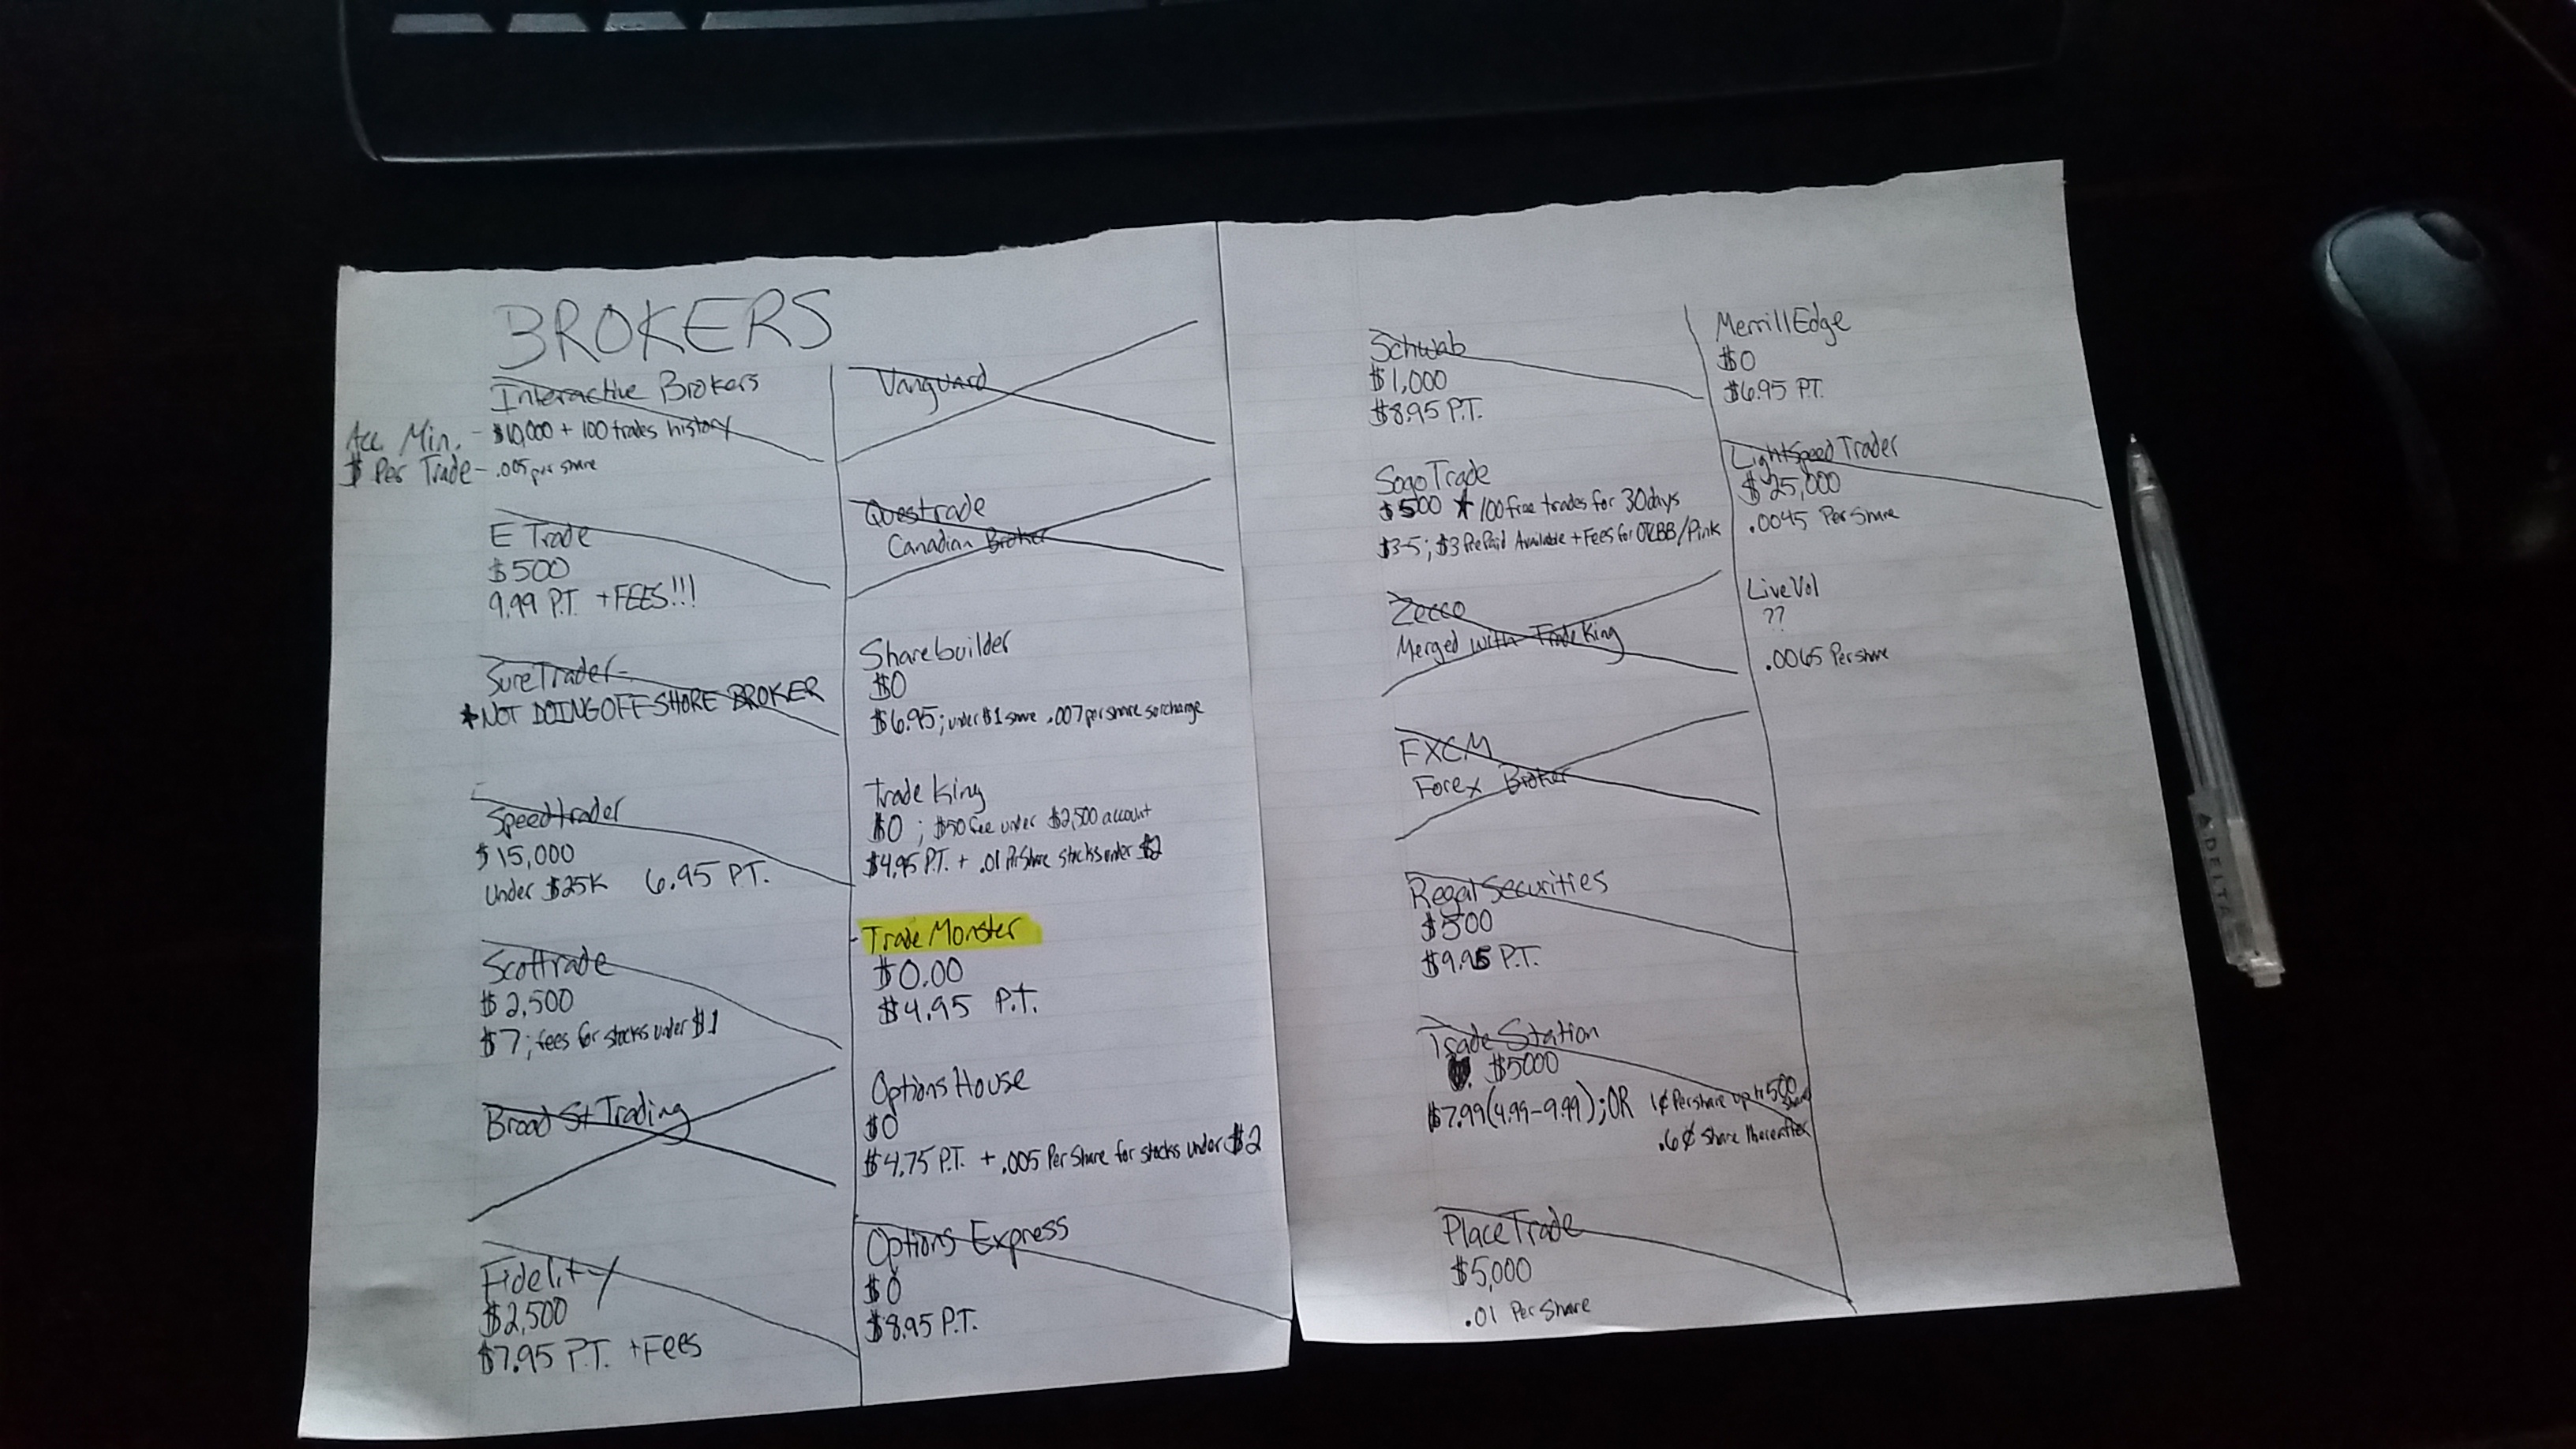 BROKERS
Interactive Brokers
Acc Min. - $10,000 + 100 trades history
$ Per Trade - .005 per share
E Trade
$500
9.99 P.T. + FEES!!!
SureTrader -
* NOT DOING OFFSHORE BROKER
Speedtrader
$15,000
Under $25K 6.95 P.T.
Scottrade
$2,500
$7; fees for stocks under $1
Broad St Trading
Fidelity
$2,500
$7.95 P.T. + Fees
Vanguard
Questrade
Canadian Broker
Sharebuilder
$0
$6.95; under $1 share .007 per share surcharge
Trade King
$0; $50 fee under $2,500 account
$4.95 P.T. + .01 Per Share stocks under $2
- Trade Monster
$0.00
$4.95 P.T.
Options House
$0
$4.75 P.T. + .005 Per Share for stocks under $2
Options Express
$0
$8.95 P.T.
Schwab
$1,000
$8.95 P.T.
Sogo Trade
$500 * 100 free trades for 30 days
$3-5; $3 PrePaid Available + Fees for OTCBB/Pink
Zecco
Merged with Trade King
FXCM
Forex Broker
Regal Securities
$500
$9.95 P.T.
Trade Station
$5000
$7.99 (4.99-9.99); OR 1¢ Per share up to 500 shares
.6¢ share thereafter
Place Trade
$5,000
.01 Per Share
Merrill Edge
$0
$6.95 P.T.
LightSpeed Trader
$25,000
.0045 Per Share
LiveVol
??
.0065 Per share
ADELTA